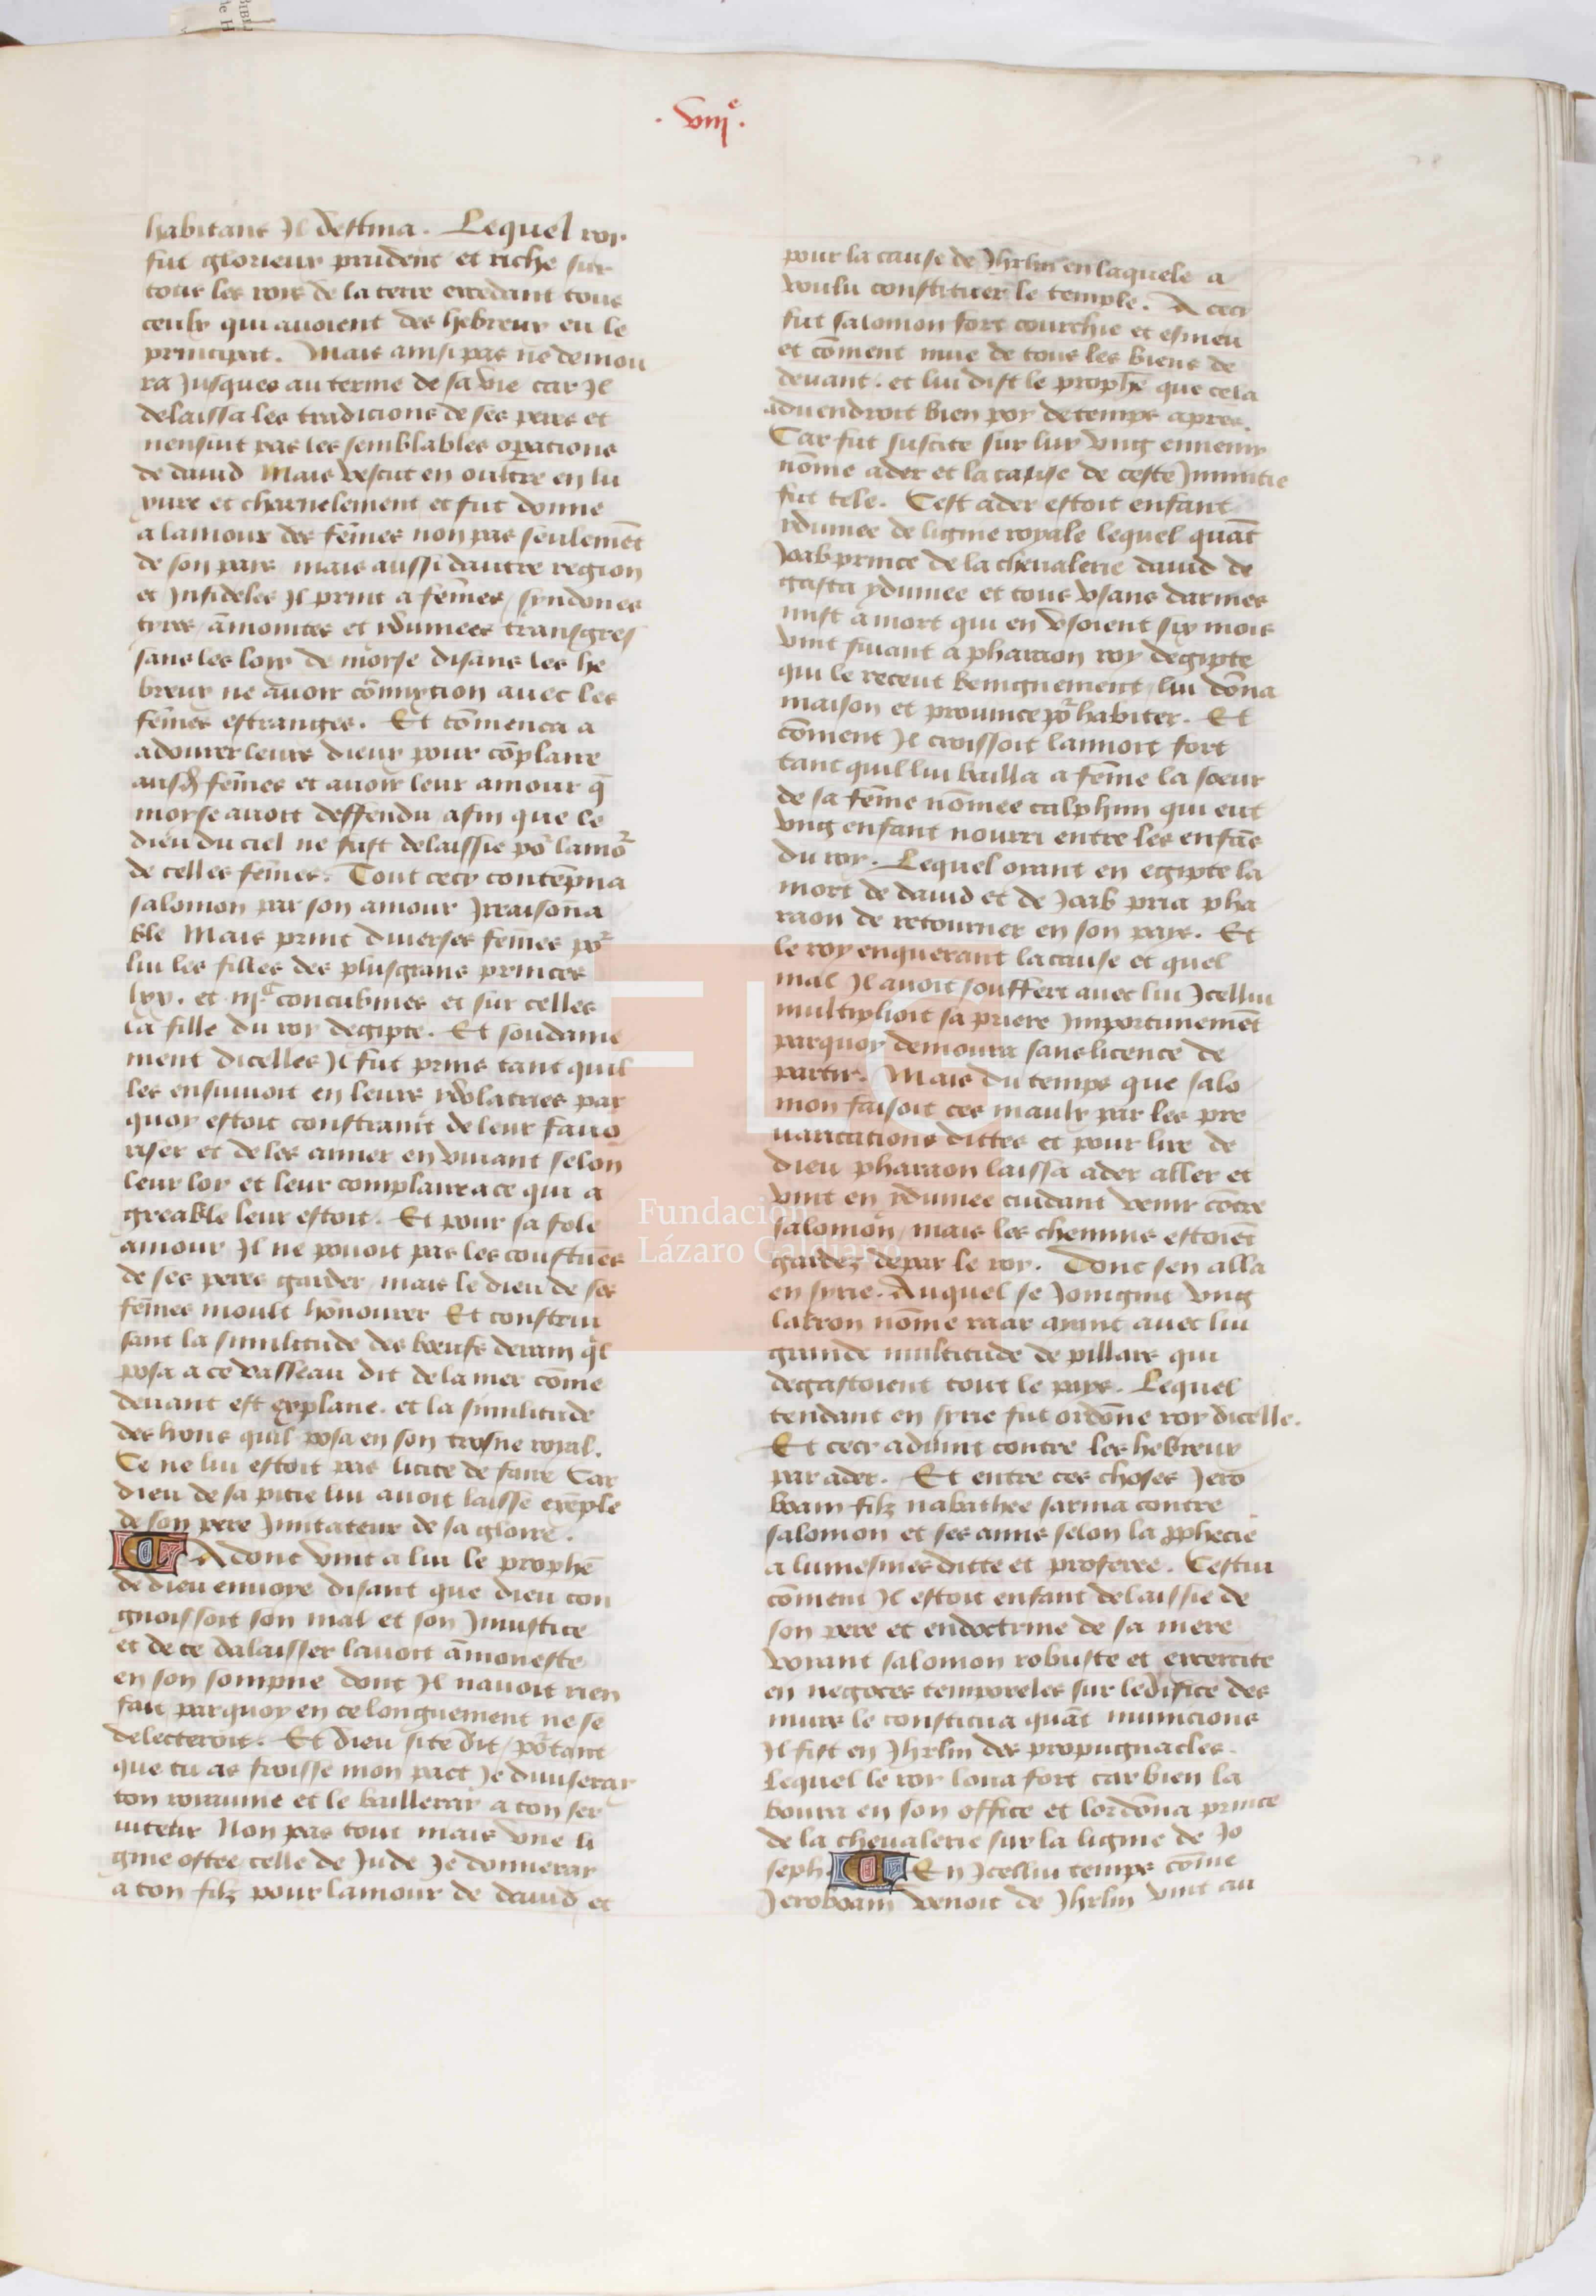 . viij^e .
habitans Il destina . Lequel roy
fut glorieux prudent et riche sur
tous les rois de la terre excedant tous
ceulx qui auoient des hebreux eu le
principat . Mais ainsi pas ne demou
ra Jusques au terme de sa vie car Il
delaissa les tradicions de ses peres et
nensiuit pas les semblables opacions
de dauid Mais vescut en oultre en lu
xure et charnelement et fut donne
a lamour des fẽmes non pas seulemẽt
de son pays mais aussi dautre region
et Infideles Il print a fẽmes / syndones
tyres / ãmonites et ydumees transgres
sans les loix de moyse disans les he
breux ne auoir cõmixtion auec les
fẽmes estranges . Et cõmenca a
adourer leurs dieux pour cõplaire
ausd fẽmes et auoir leur amour q̃
moyse auoit deffendu afin que le
dieu du ciel ne fust delaissie po^r lamo^r
de celles fẽmes . Tout cecy contẽpna
salomon par son amour Irraisona
ble Mais print diuerses fẽmes po^r
lui les filles des plusgrans princes
lxx . et iij^c concubines et sur celles
la fille du roy degipte . Et soudaine
ment dicelles Il fut prins tant quil
les ensuiuoit en leurs ydolatries par
quoy estoit constraint de leur fauo
riser et de les aimer en viuant selon
leur loy et leur complaire a ce qui a
greable leur estoit . Et pour sa fole
amour Il ne pouoit pas les coustues
de ses peres garder / mais le dieu de ses
fẽmes moult hõnourer Et constru
sant la similitude des boeufs derain q̃l
posa a ce vasseau dit de la mer cõme
deuant est explane . et la similitude
des lyons quil posa en son trosne royal .
Ce ne lui estoit pas licite de faire Car
dieu de sa pitie lui auoit laisse exẽple
de son pere Imitateur de sa gloire .
Adont vint a lui le prophẽ
de dieu enuoye disant que dieu con
gnoissoit son mal et son Iniustice
et de ce dalaisser lauoit ãmoneste
en son sompne dont Il nauoit rien
fait parquoy en ce longuement ne se
delecteroit . Et dieu si te dit / po^rtant
que tu as froisse mon pact Je diuiseray
ton royaume et le bailleray a ton ser
uiteur Non pas tout mais vne li
gnie ostee celle de Jude Je donneray
a ton filz pour lamour de dauid et
pour la cause de Jhrlm en laquele a
voulu constituer le temple . A ceci
fut salomon fort courchie et esmeu
et cõment mue de tous les biens de
deuant . et lui dist le prophẽ que cela
aduendroit bien poy de temps apres .
Car fut suscite sur luy vng ennemy
nõme ader et la cause de ceste Inimitie
fut tele . Cest ader estoit enfant
ydumee de lignie royale lequel quãt
Joab prince de la cheualerie dauid de
gasta ydumee et tous vsans darmes
mist a mort qui en vsoient six mois
vint fuiant a pharaon roy degipte
qui le receut benignement / lui dõna
maison et prouince po^r habiter . Et
cõment Il croissoit laimoit fort
tant quil lui bailla a fẽme la soeur
de sa fẽme nõmee calphim qui eut
vng enfant nourri entre les enfãs
du roy . Lequel oyant en egipte la
mort de dauid et de Joab pria pha
raon de retourner en son pays . Et
le roy enquerant la cause et quel
mal Il auoit souffert auec lui Icellui
multiplioit sa priere Importunemẽt
parquoy demoura sans licence de
partir . Mais du temps que salo
mon faisoit ces maulx par les pre
uaricacions dittes et pour lire de
dieu pharaon laissa ader aller et
vint en ydumee cuidant venir cõtre
salomon / mais les chemins estoiẽt
gardez depar le roy . Donc sen alla
en syrie . Auquel se Joingnit vng
labron nõme raar ayant auec lui
grande multitude de pillars qui
degastoient tout le pays . Lequel
tendant en syrie fut ordõne roy dicelle .
Et cecy aduint contre les hebreux
par ader . Et entre ces choses Jero
boam filz nabathee sarma contre
salomon et ses amis selon la pphecie
a luimesmes ditte et proferee . Cestui
cõment Il estoit enfant delaissie de
son pere et endoctrine de sa mere
voyant salomon robuste et excercite
en negoces temporeles sur ledifice des
murs le constitua quãt municions
Il fist en Jhrlm des propugnacles .
Lequel le roy loua fort car bien la
boura en son office et lordõna prince
de la cheualerie sur la lignie de Jo
seph . En Icellui temps cõme
Jeroboam venoit de Jhrlm vint au
Fundación
Lázaro Galdiano